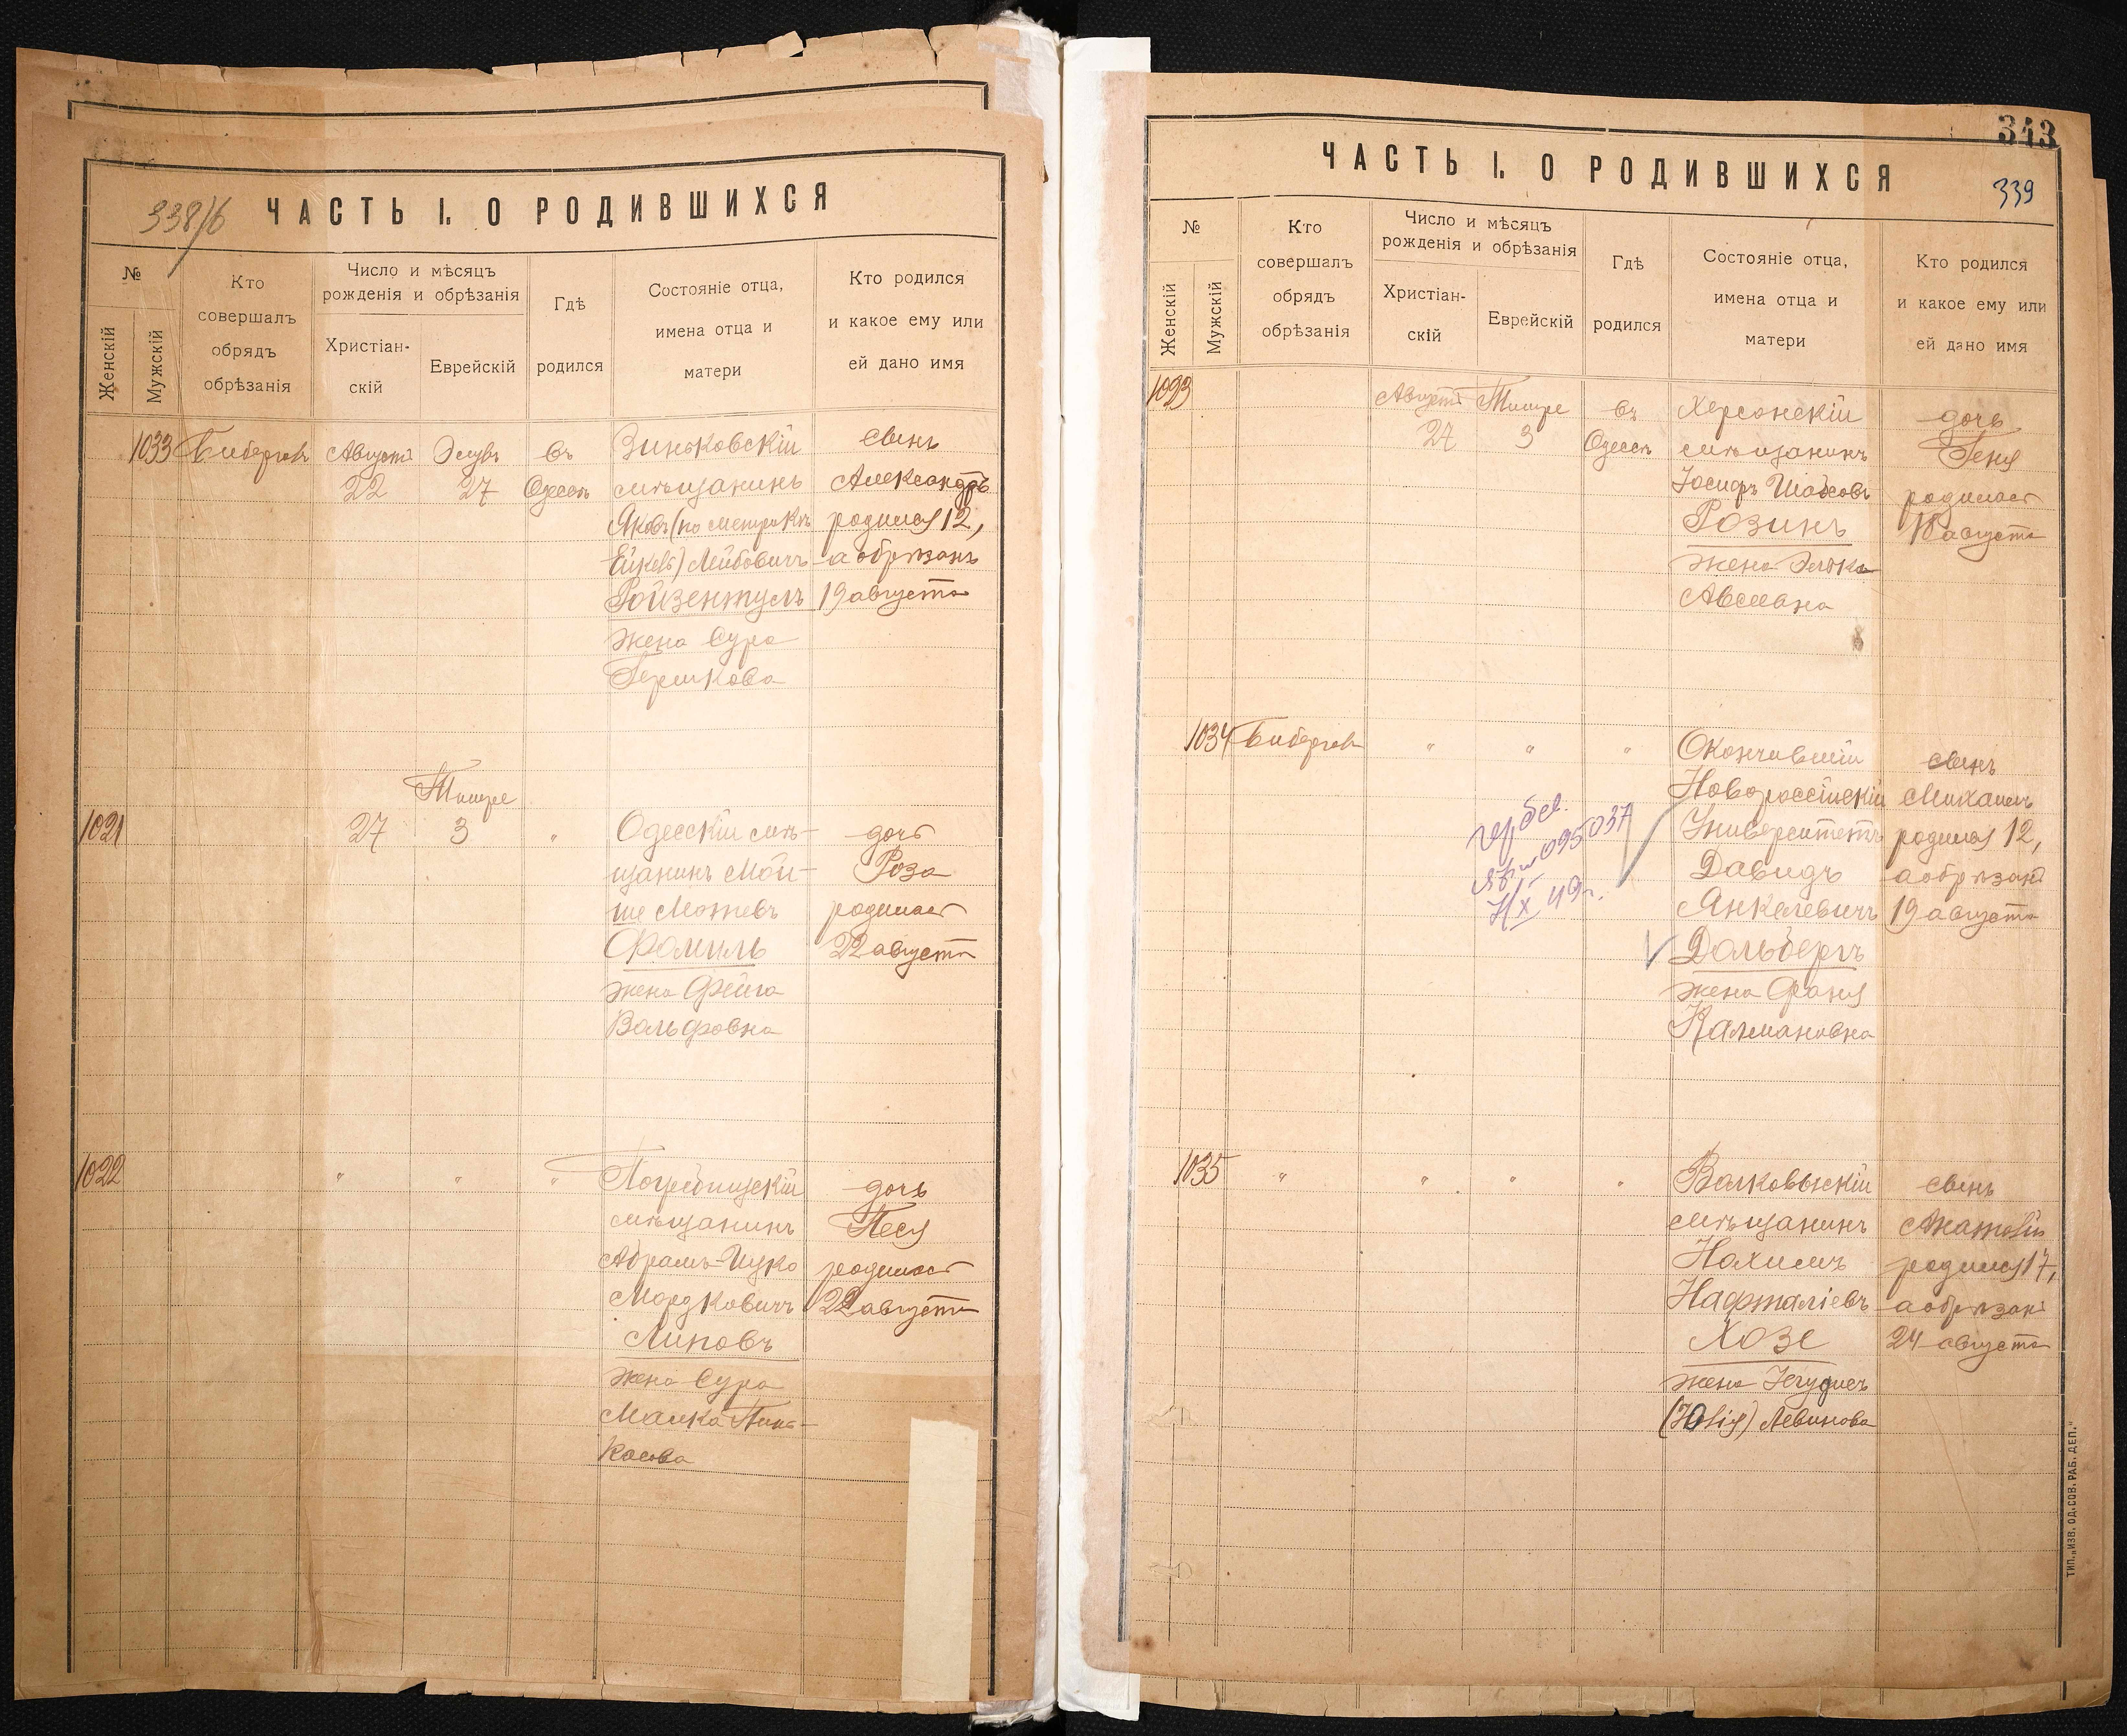 338/б
ЧАСТЬ I. О РОДИВШИХСЯ
№
Женскій
Мужскій
Кто
совершалъ
обрядъ
обрѣзанія
Число и мѣсяцъ
рожденія и обрѣзанія
Христіан-
скій
Еврейскій
Гдѣ
родился
Состояніе отца,
имена отца и
матери
Кто родился
и какое ему или
ей дано имя
1033
Августа
22
Элулъ
27
въ
Одессѣ
Зиньковскій
мѣщанинъ
Яковъ (по метрикѣ
Лейбовичъ
Ройзентулъ
жена Сура
Гершкова
сынъ
Александръ
родился 12,
а обрѣзанъ
19 августа
1021
27
Тишре
3
"
Одесскій мѣ-
щанинъ Мой-
ше
Фамиль
жена Фейга
Вольфовна
дочь
Роза
родилась
22 августа
1022
"
"
"
Погребищскій
мѣщанинъ
Абрамъ-Ицко
Мордковичъ
Липовъ
жена Сура
Малка Пин-
касова
дочь
Песя
родилась
22 августа
343
339
ЧАСТЬ I. О РОДИВШИХСЯ
№
Женскій
Мужскій
Кто
совершалъ
обрядъ
обрѣзанія
Число и мѣсяцъ
рожденія и обрѣзанія
Христіан-
скій
Еврейскій
Гдѣ
родился
Состояніе отца,
имена отца и
матери
Кто родился
и какое ему или
ей дано имя
1023
Августа
27
Тишре
3
въ
Одессѣ
Херсонскій
мѣщанинъ
Іосифъ
Розинъ
жена Элька
дочь
Геня
родилась
18 августа
1034
"
"
"
Окончившій
Новороссійскій
Университетъ
Давидъ
Янкелевичъ
Дальбергъ
жена Фаня
Калмановна
сынъ
Михаилъ
родился 12,
а обрѣзанъ
19 августа
095037
X 49г.
1035
"
"
"
"
Волковыскій
мѣщанинъ
Нахимъ
Нафталіевъ
Хозе
жена
(Юлія) Левинова
сынъ
Анатолій
родился 17,
а обрѣзанъ
24 августа
ТИП. „ИЗВ. ОД. СОВ. РАБ. ДЕП."